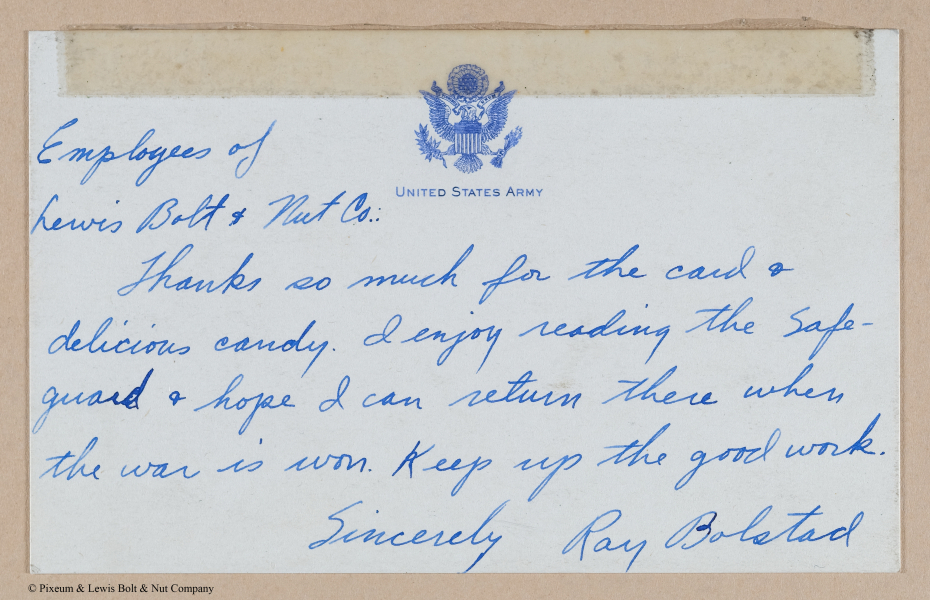 UNITED STATES ARMY
Employees of
Lewis Bolt & Nut Co.:
Thanks so much for the card &
delicious candy. I enjoy reading the Safe-
guard & hope I can return there when
the war is won. Keep up the good work.
Sincerely Ray Bolstad
© Pixeum & Lewis Bolt & Nut Company